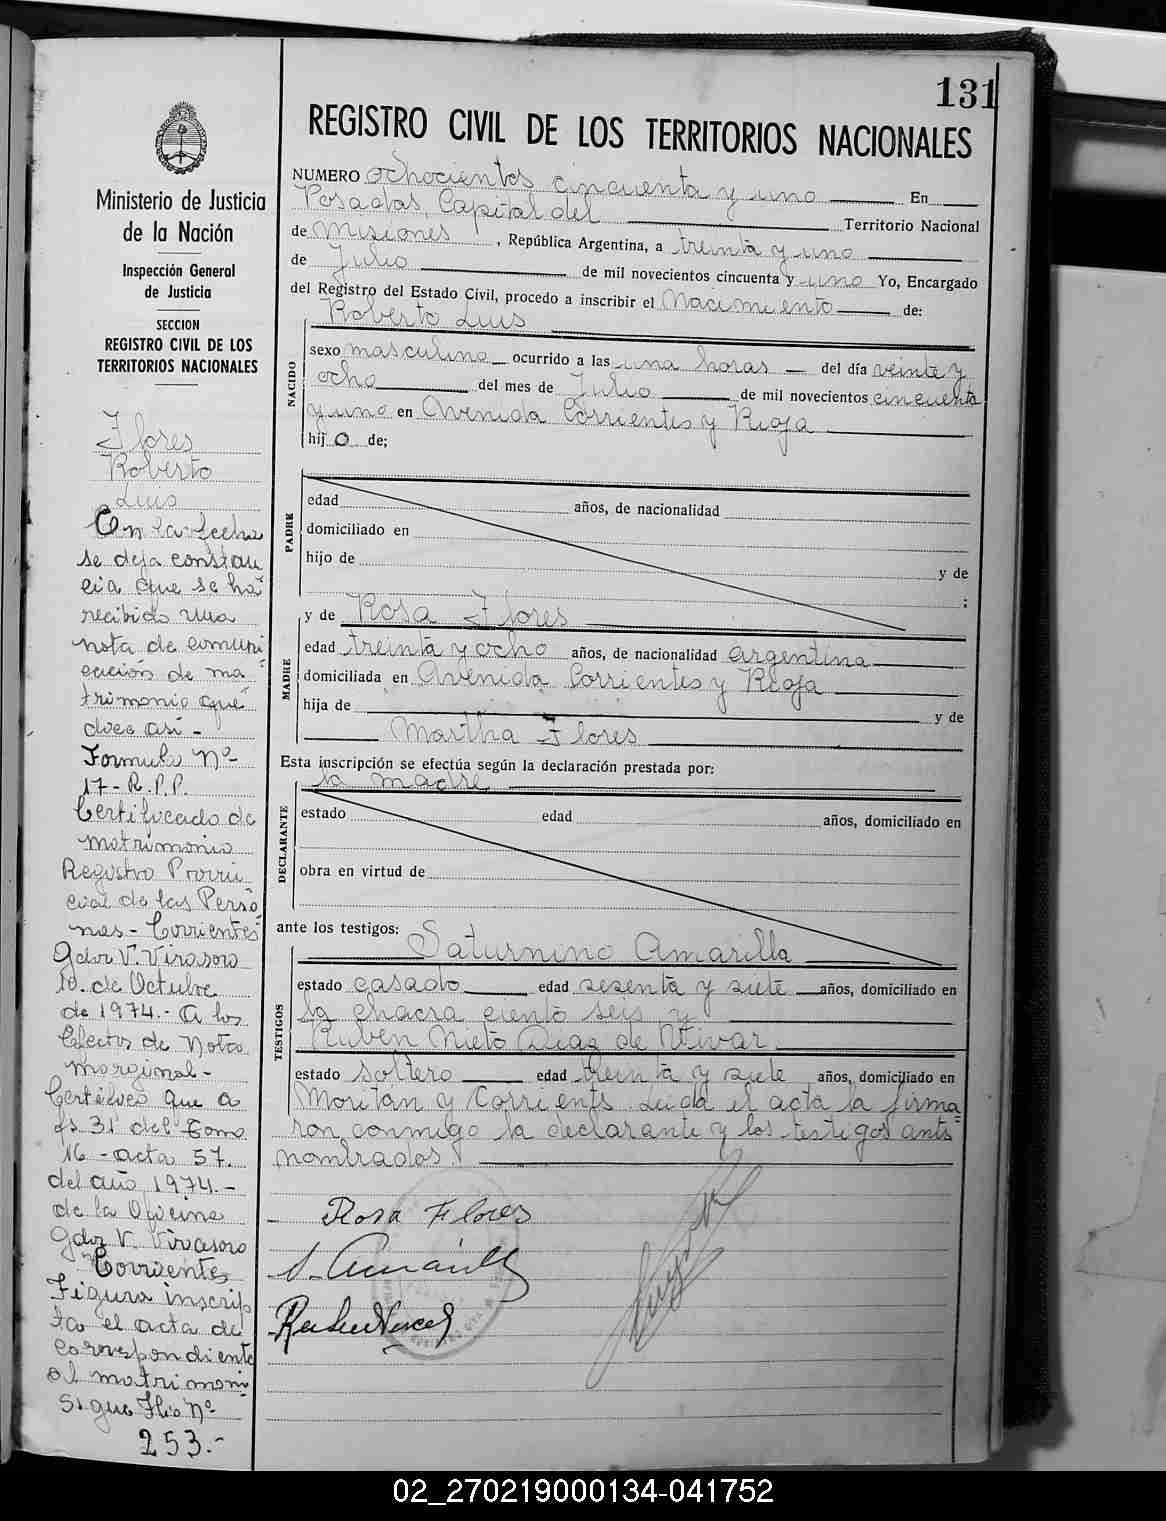 131
REGISTRO CIVIL DE LOS TERRITORIOS NACIONALES
Ministerio de Justicia
de la Nación
Inspección General
de Justicia
SECCION
REGISTRO CIVIL DE LOS
TERRITORIOS NACIONALES
Flores
Roberto
Luis
En la fecha
se deja constan
cia que se ha
recibido una
nota de comuni
cación de ma
trimonio que
dice así -
Formula Nº
17-R.P.P.
Certificado de
matrimonio
Registro Provin
cial de las Perso
nas - Corrientes
Gdor V. Virasoro
10 de Octubre
de 1974.- A los
Efectos de Nota
marginal -
Certifico que a
fs 31 del Tomo
16 - acta 57.
del año 1974.-
de la Oficina
Gdor V. Virasoro
Corrientes
Figura inscrip
ta el acta de
correspondiente
al matrimoni
Sigue Flio Nº
253.-
NUMERO ochocientos cincuenta y uno En
Posadas, Capital del Territorio Nacional
de Misiones, República Argentina, a treinta y uno
de Julio de mil novecientos cincuenta y uno Yo, Encargado
del Registro del Estado Civil, procedo a inscribir el Nacimiento de:
Roberto Luis
NACIDO
sexo masculino ocurrido a las una horas del día veinte y
ocho del mes de Julio de mil novecientos cincuenta
y uno en Avenida Corrientes y Rioja
hijo de;
PADRE
edad años, de nacionalidad
domiciliado en
hijo de y de
;
y de Rosa Flores
MADRE
edad treinta y ocho años, de nacionalidad argentina
domiciliada en Avenida Corrientes y Rioja
hija de y de
Martha Flores
Esta inscripción se efectúa según la declaración prestada por:
la madre
DECLARANTE
estado edad años, domiciliado en
obra en virtud de
ante los testigos:
Saturnino Amarilla
TESTIGOS
estado casado edad sesenta y siete años, domiciliado en
la chacra ciento seis y
Ruben Nieto Diaz de Vivar
estado soltero edad treinta y siete años, domiciliado en
Moritan y Corrients. Leida el acta la firma=
ron conmigo la declarante y los testigos ants
nombrados
Rosa Flores
S. Amarilla
02_270219000134-041752